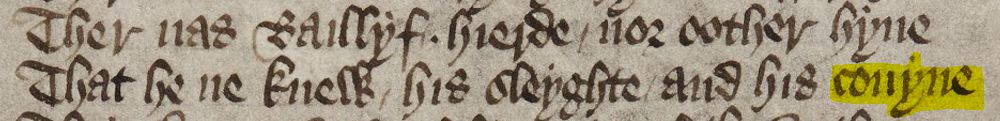 Ther nas Baillyf . hierde / nor oother hyne
That he ne knew / his sleyghte / and his couyne